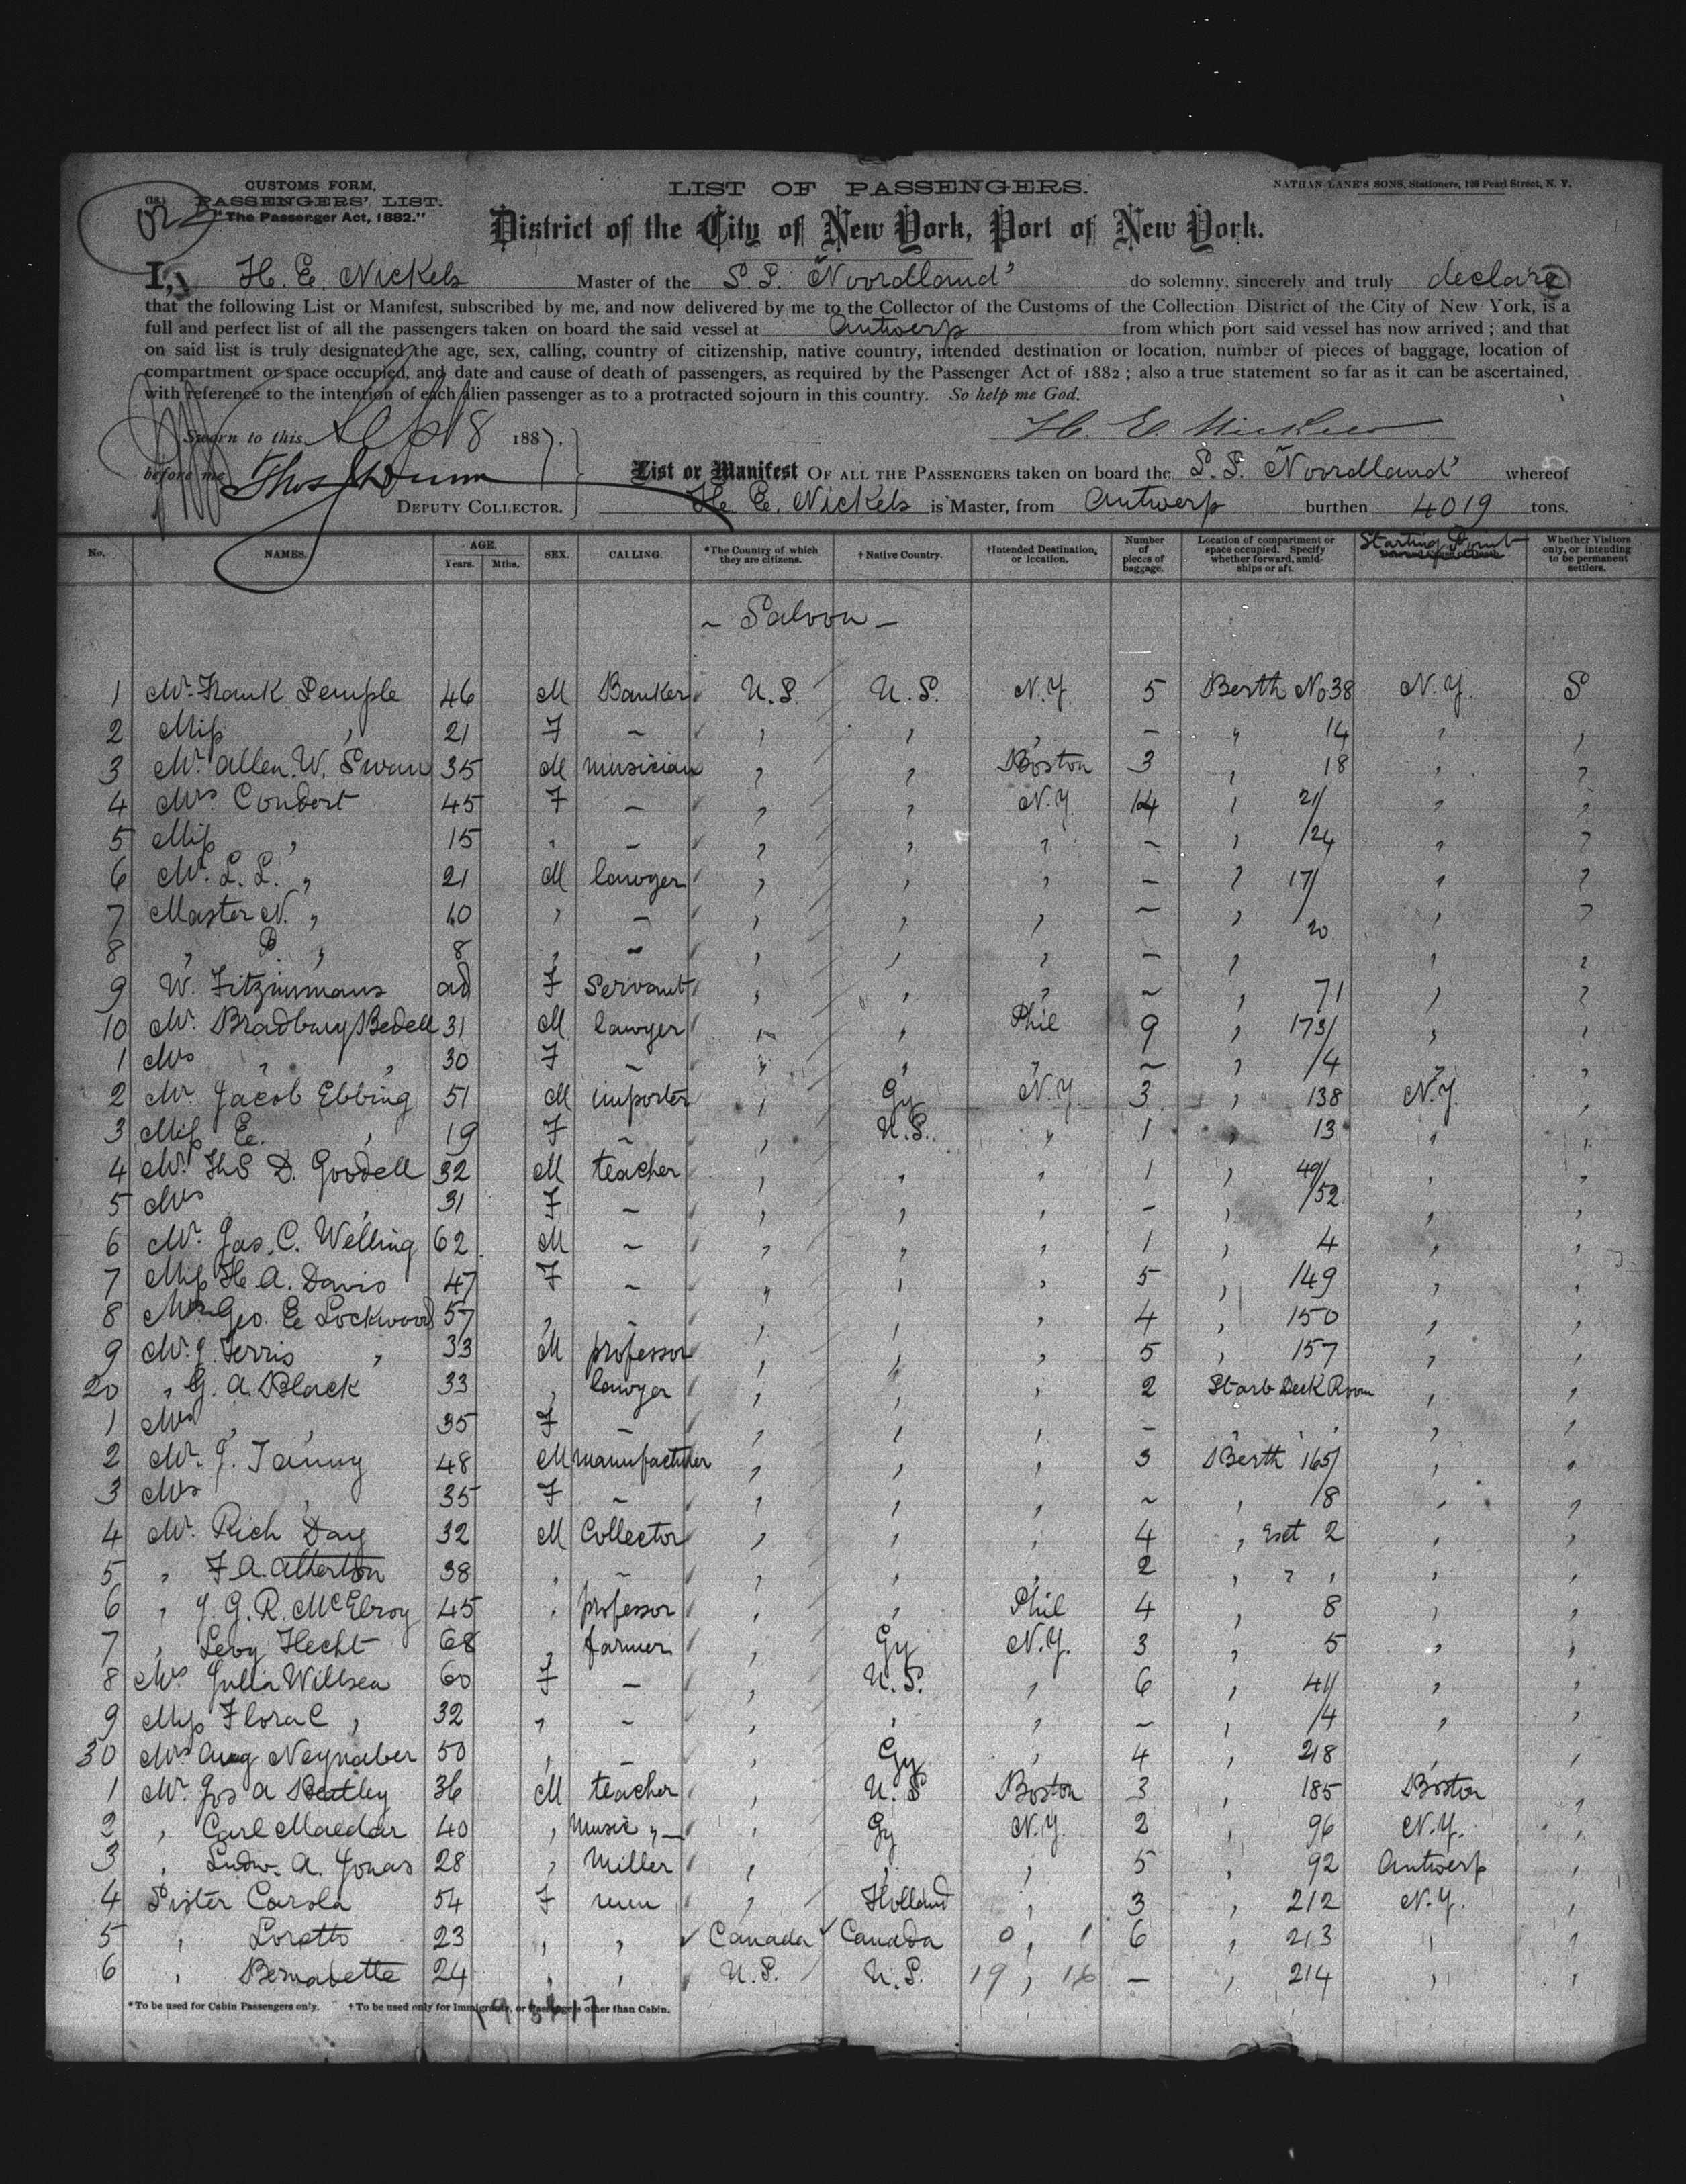 CUSTOMS FORM,
PASSENGERS' LIST.
"The Passenger Act, 1882."
LIST OF PASSENGERS.
NATHAN LANE'S SONS, Stationers, 128 Pearl Street, N. Y.
District of the City of New York, Port of New York.
I, H. E. Nickels Master of the S.S. "Noordland" do solemny, sincerely and truly declare
that the following List or Manifest, subscribed by me, and now delivered by me to the Collector of the Customs of the Collection District of the City of New York, is a
full and perfect list of all the passengers taken on board the said vessel at Antwerp from which port said vessel has now arrived ; and that
on said list is truly designated the age, sex, calling, country of citizenship, native country, intended destination or location, number of pieces of baggage, location of
compartment or space occupied, and date and cause of death of passengers, as required by the Passenger Act of 1882 ; also a true statement so far as it can be ascertained,
with reference to the intention of each alien passenger as to a protracted sojourn in this country. So help me God.
Sworn to this Sep 8 1887. H. E. Nickels
before me Thos J Dunn
DEPUTY COLLECTOR.
List or Manifest OF ALL THE PASSENGERS taken on board the S.S. "Noordland" whereof
H. E. Nickels is Master, from Antwerp burthen 4019 tons.
No. NAMES. AGE. Years. Mths. SEX. CALLING. *The Country of which they are citizens. †Native Country. †Intended Destination, or location. Number of pieces of baggage. Location of compartment or space occupied. Specify whether forward, amid-ships or aft. Starting Point Whether Visitors only, or intending to be permanent settlers.
~ Saloon ~
1 Mr. Frank Semple 46 M Banker U.S. U.S. N.Y. 5 Berth No 38 N.Y. S
2 Miss " 21 F ~ " " " ~ " 14 " "
3 Mr. Allen. W. Swan 35 M musician " " Boston 3 " 18 " "
4 Mrs Coudert 45 F ~ " " N.Y. 14 " 21/ " "
5 Miss " 15 " ~ " " " ~ " /24 " "
6 Mr. L. L. " 21 M lawyer " " " ~ " 17/ " "
7 Master N. " 10 " ~ " " " ~ " /20 " "
8 " " 8 " ~ " " " ~ " " "
9 W. Fitzimmans ad F Servant " " " ~ " 71 " "
10 Mr. Bradbury Bedell 31 M lawyer " " Phil 9 " 173/ " "
1 Mrs " " 30 F ~ " " " ~ " /4 " "
2 Mr. Jacob Ebbing 51 M importer " Gy N.Y. 3 " 138 N.Y. "
3 Miss E. " 19 F ~ " U.S. " 1 " 13 " "
4 Mr. Ths D. Goodell 32 M teacher " " " 1 " 49/ " "
5 Mrs " 31 F ~ " " " ~ " /52 " "
6 Mr. Jas. C. Welling 62 M ~ " " " 1 " 4 " "
7 Miss H. A. Davis 47 F ~ " " " 5 " 149 " "
8 Mrs Geo. E. Lockwood 57 " ~ " " " 4 " 150 " "
9 Mr. J. Ferris " 33 M professor " " " 5 " 157 " "
20 " G. A. Black 33 " lawyer " " " 2 Starb Deck Room " "
1 Mrs " " 35 F ~ " " " ~ " " " " "
2 Mr. J. 48 M manufacturer " " " 3 Berth 165/ " "
3 Mrs " 35 F ~ " " " ~ " /8 " "
4 Mr. Rich Day 32 M Collector " " " 4 " 2 " "
5 " F. A. Atherton 38 " ~ " " " 2 " " " " "
6 " J. G. R. McElroy 45 " professor " " Phil 4 " 8 " "
7 " Levy Hecht 68 " farmer " Gy N.Y. 3 " 5 " "
8 Mrs Julia Willsea 60 F ~ " U.S. " 6 " 41/ " "
9 Miss Flora C " 32 " ~ " " " ~ " /4 " "
30 Mrs Aug Neynaber 50 " ~ " Gy " 4 " 218 " "
1 Mr. Jos A Beatley 36 M teacher " U.S Boston 3 " 185 Boston "
2 " Carl Maedar 40 " Music " ~ " Gy N.Y. 2 " 96 N.Y. "
3 " Ludw. A. Jonas 28 " Miller " " " 5 " 92 Antwerp "
4 Sister Carola 54 F nun " Holland " 3 " 212 N.Y. "
5 " Loretto 23 " " Canada Canada 0 " 1 6 " 213 " "
6 " Bernadette 24 " " U.S. U.S. 19 " 16 ~ " 214 " "
*To be used for Cabin Passengers only. †To be used only for Immigrants, or Passengers other than Cabin.